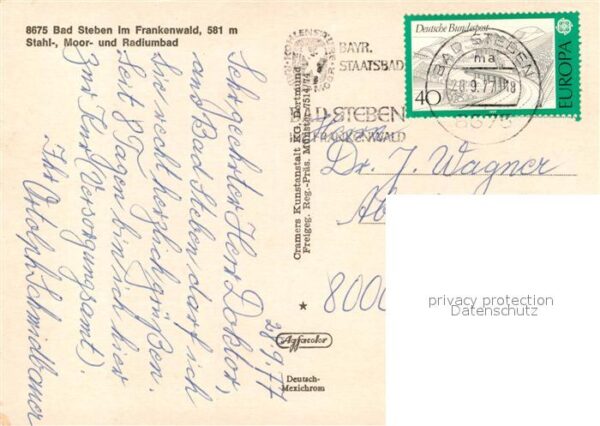 8675 Bad Steben im Frankenwald, 581 m
Stahl-, Moor- und Radiumbad
28.9.77
Sehr geehrter Herr Doktor,
aus Bad Steben darf ich
Sie recht herzlich grüßen.
Seit 8 Tagen bin ich hier
zur Kur (Versorgungsamt).
Ihr Adolph Schmidbauer
Cramers Kunstanstalt KG, Dortmund
Freigeg. Reg.-Präs. Münster
Agfacolor
Deutsch-
Mexichrom
BAYR.
STAATSBAD
BAD STEBEN
FRANKENWALD
Deutsche Bundespost
40
EUROPA
BAD STEBEN
ma
28.9.77-18
8675
Herrn
Dr. J. Wagner
8000
privacy protection
Datenschutz